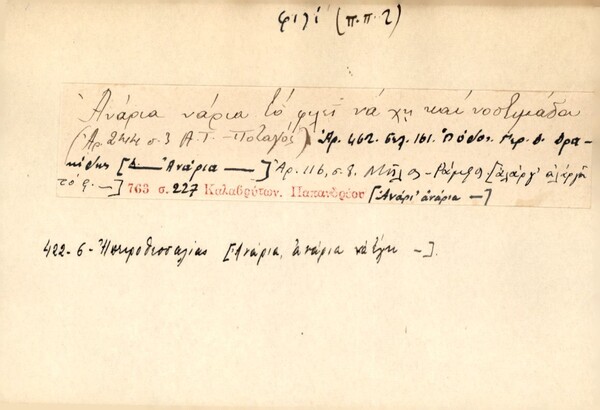 φιλί (π.π. 2)
Ἀνάρια νάρια τὸ φιλεῖ νά χη καὶ νοστιμάδα
(Ἀρ. 244 σ. 3 Α.Τ. - Ποταγός) Ἀρ. 462. σελ. 161. Ῥόδος. Γερ. Δ. Δρα-
κίδης [Δ. Ἀνάρια —] Ἀρ. 116, σ. 8. Μῆλος - Ράμφος [ἀλάργ' ἀλάργα
τὸ φ. —] 763 σ. 227 Καλαβρύτων. Παπανδρέου [Ἀνάρι' ἀνάρια —]
422 - 6 - Ἠπειροθεσσαλίας [Ἀνάρια, ἀνάρια —].